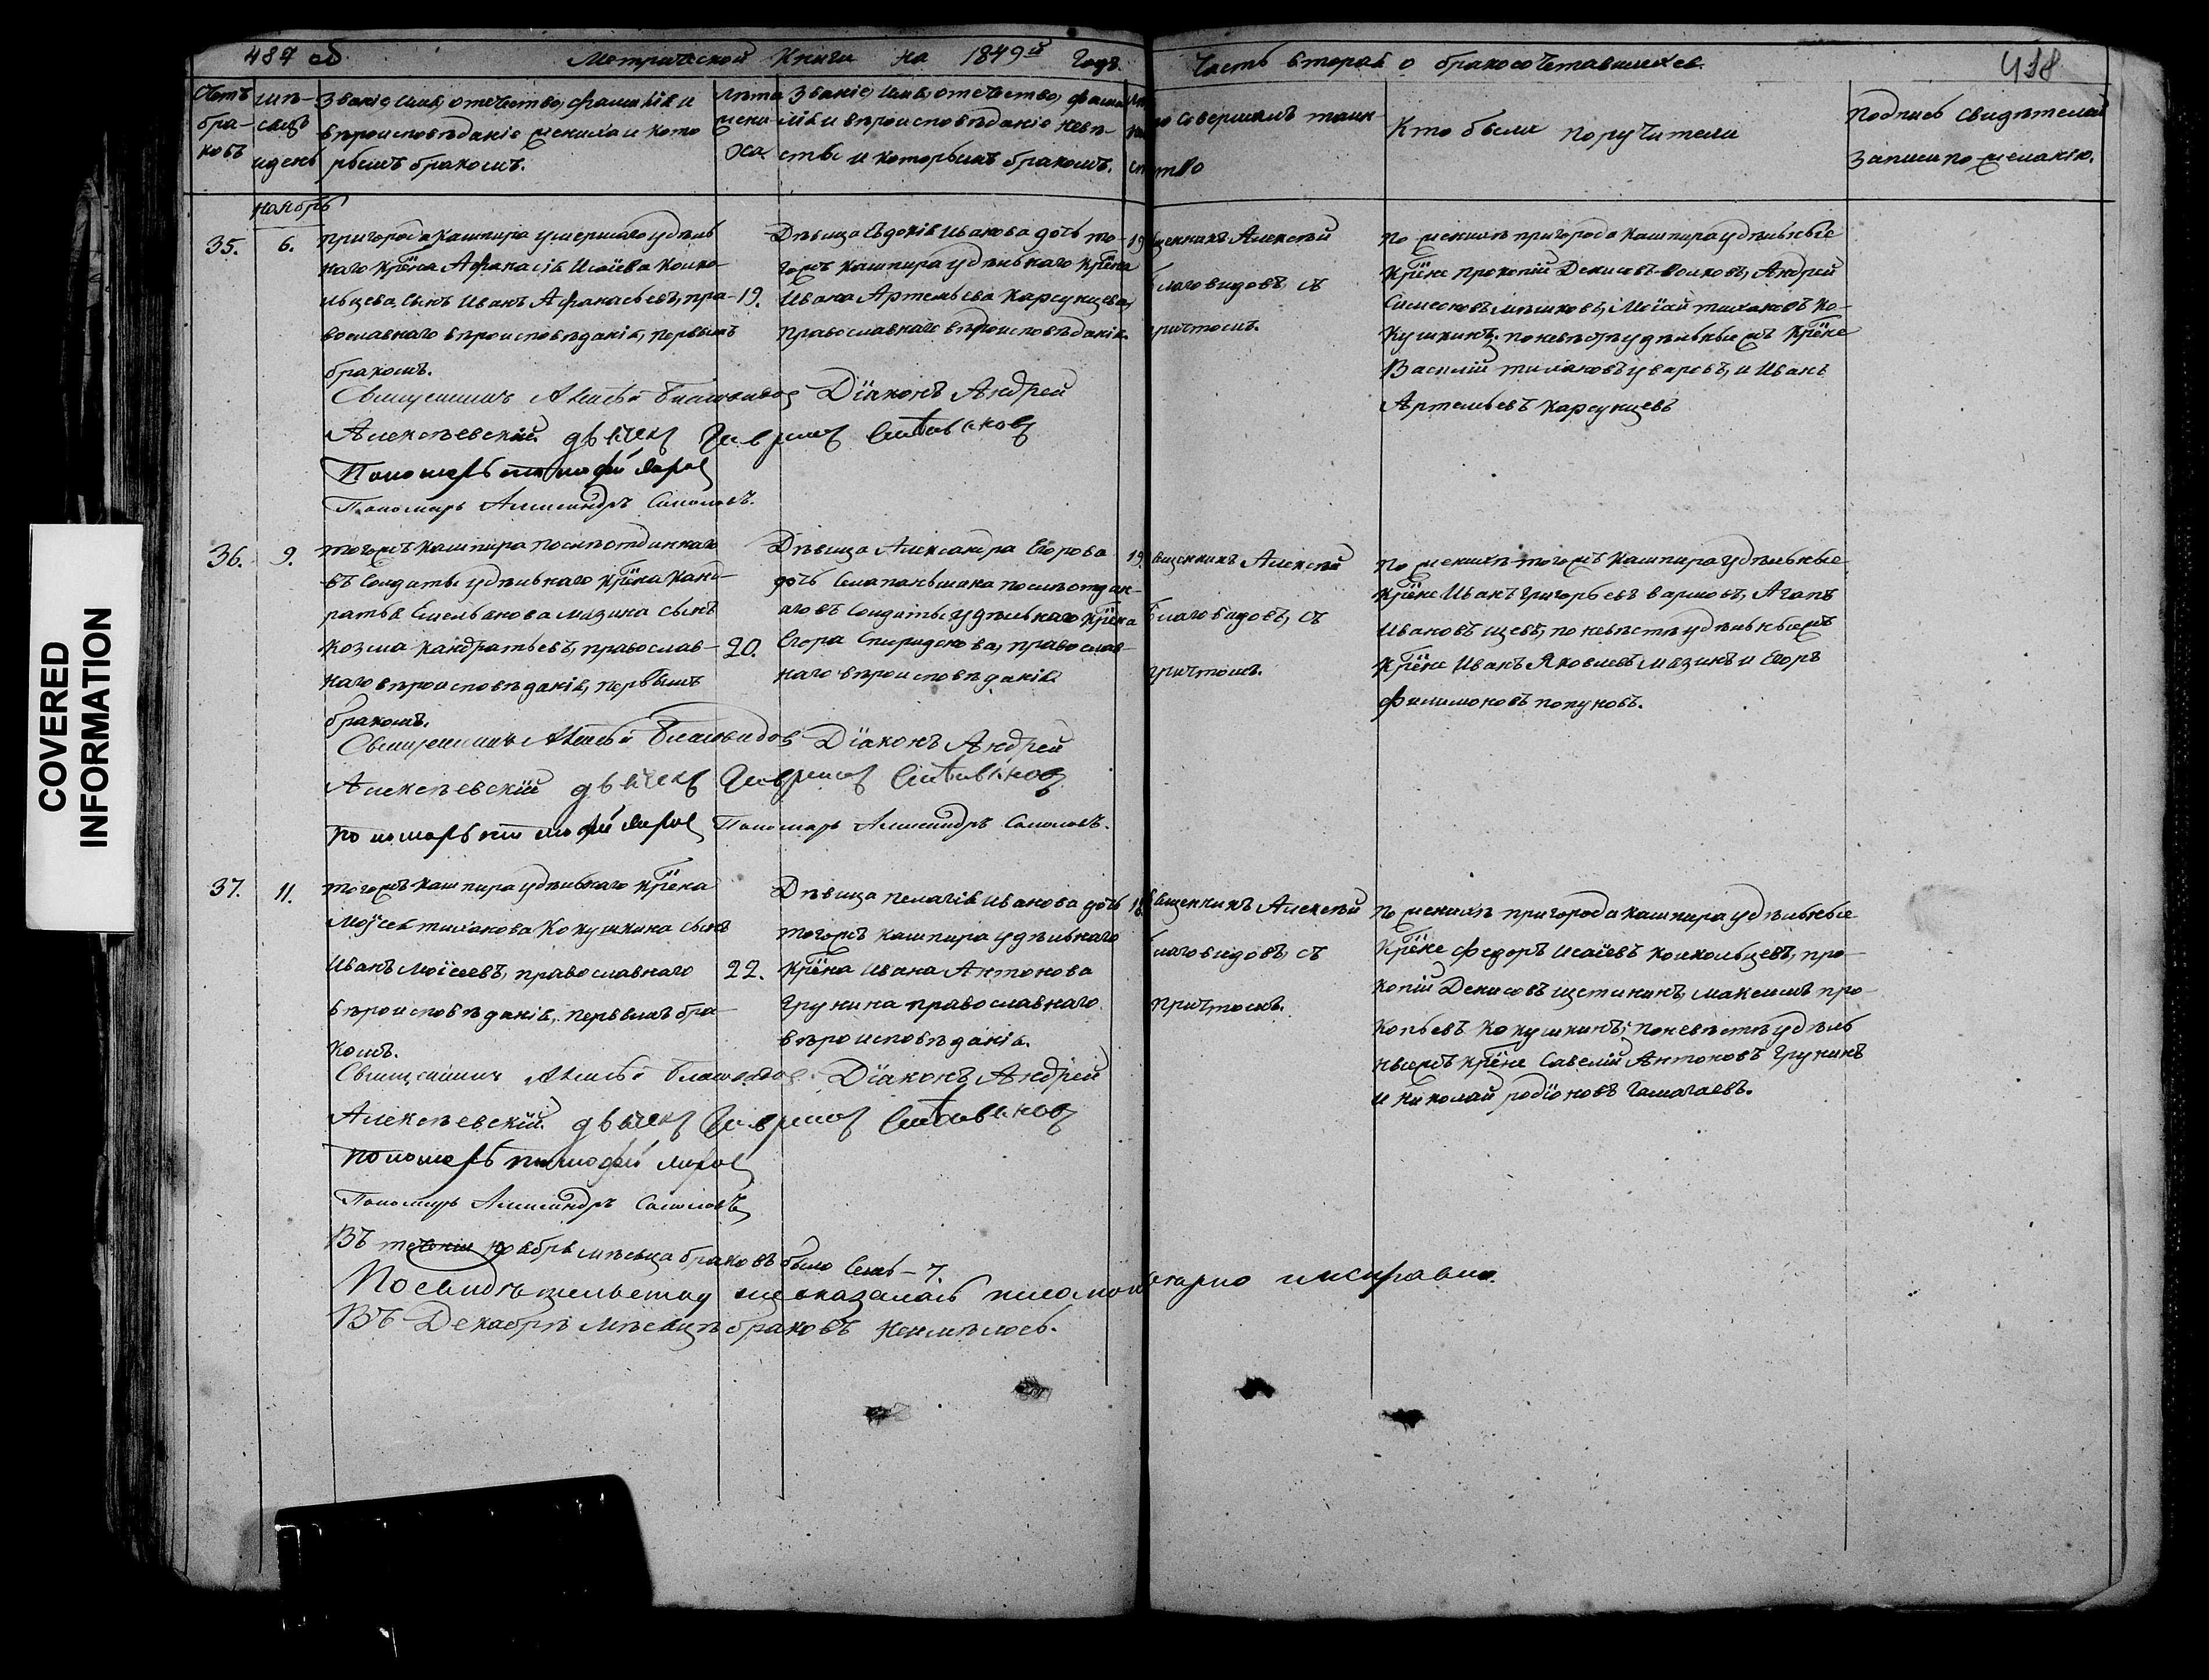 487 об
Метрической Книги на 1849й Годъ
Часть вторая о бракосочетавшихся.
418
Счетъ браковъ
мѣсяцъ и день
Званіе, имя, отечество, фамилія и
вѣроисповѣданіе жениха и кото
рымъ бракомъ.
лѣта
жени
ха
Званіе, имя, отечество, фами
лія и вѣроисповѣданіе невѣ-
сты и которымъ бракомъ.
то совершалъ таин
ство
Кто были поручители
Подпись свидѣтелей
записи по желанію.
ноябрь
35.
6.
пригорода Кашпира умершаго удѣль
наго Крѣна Афанасія Исаіева Колко-
льцева сынъ Иванъ Афанасьевъ, пра-
вославнаго вѣроисповѣданія, первымъ
бракомъ.
19.
Дѣвица Евдокія Иванова дочь то-
гожъ Кашпира удѣльнаго Крѣна
Ивана Артемьева Карсунцева,
православнаго вѣроисповѣданія.
19
щенникъ Алексѣй
Благовидовъ, съ
причтомъ.
По женихѣ пригорода Кашпира удѣльные
Крѣне Прокопій Денисовъ Волковъ, Андрей
Симеоновъ Мѣшковъ, Моісей Тихановъ Ко-
кушкинъ; по невѣстѣ удѣльныежъ Крѣне
Василій Тихановъ Уваровъ, и Иванъ
Артемьевъ Карсунцевъ
Священникъ Алексѣй Благовидовъ Діаконъ Андрей
Алексѣевскій дьячекъ Гавриилъ
Пономарь Тимофей
Пономарь Александръ Соколовъ.
36.
9.
тогожъ Кашпира послѣ отданнаго
въ Солдаты удѣльнаго Крѣна Канд-
ратья Емельянова Мазина сынъ
Козма Кандратьевъ, православ-
наго вѣроисповѣданія, первымъ
бракомъ.
20.
Дѣвица Александра Егорова
дочь послѣ отдан-
аго въ Солдаты удѣльнаго Крѣна
Егора Спиридонова, православ-
наго вѣроисповѣданія.
19.
вященникъ Алексѣй
Благовидовъ, съ
причтомъ.
По женихѣ тогожъ Кашпира удѣльные
Крѣне Иванъ Григорьевъ Варновъ, Агапъ
Ивановъ по невѣстѣ удѣльныежъ
Крѣне Иванъ Яковлевъ Мазинъ и Егоръ
Филимоновъ Попуновъ.
Священникъ Алексѣй Благовидовъ Діаконъ Андрей
Алексѣевскій дьячекъ Гавриилъ
Пономарь Тимофей Пономарь Александръ Соколовъ.
37.
11.
тогожъ Кашпира удѣльнаго Крѣна
Моісея Тиханова Кокушкина сынъ
Иванъ Моісеевъ, православнаго
вѣроисповѣданія, первымъ бра-
комъ.
22.
Дѣвица Пелагія Иванова дочь
тогожъ Кашпира удѣльнаго
Крѣна Ивана Антонова
Грунина православнаго
вѣроисповѣданія.
18
вященникъ Алексѣй
Благовидовъ, съ
причтомъ.
По женихѣ пригорода Кашпира удѣльные
Крѣне Федоръ Исаіевъ Колкольцевъ, про-
копій Денисовъ Щетининъ, Максимъ Про-
копьевъ Кокушкинъ; по невѣстѣ удѣль
ныежъ Крѣне Савелій Антоновъ Грунинъ
и Николай Родіоновъ Гамагаевъ.
Священникъ Алексѣй Благовидовъ Діаконъ Андрей
Алексѣевскій дьячекъ Гавриилъ
Пономарь Тимофей
Пономарь Александръ Соколовъ
Въ теченіи ноября мѣсяца браковъ было Семь - 7.
По свидѣтельству оказалось писано исправно.
Въ Декабрѣ мѣсяцѣ браковъ неимѣлось.
COVERED
INFORMATION